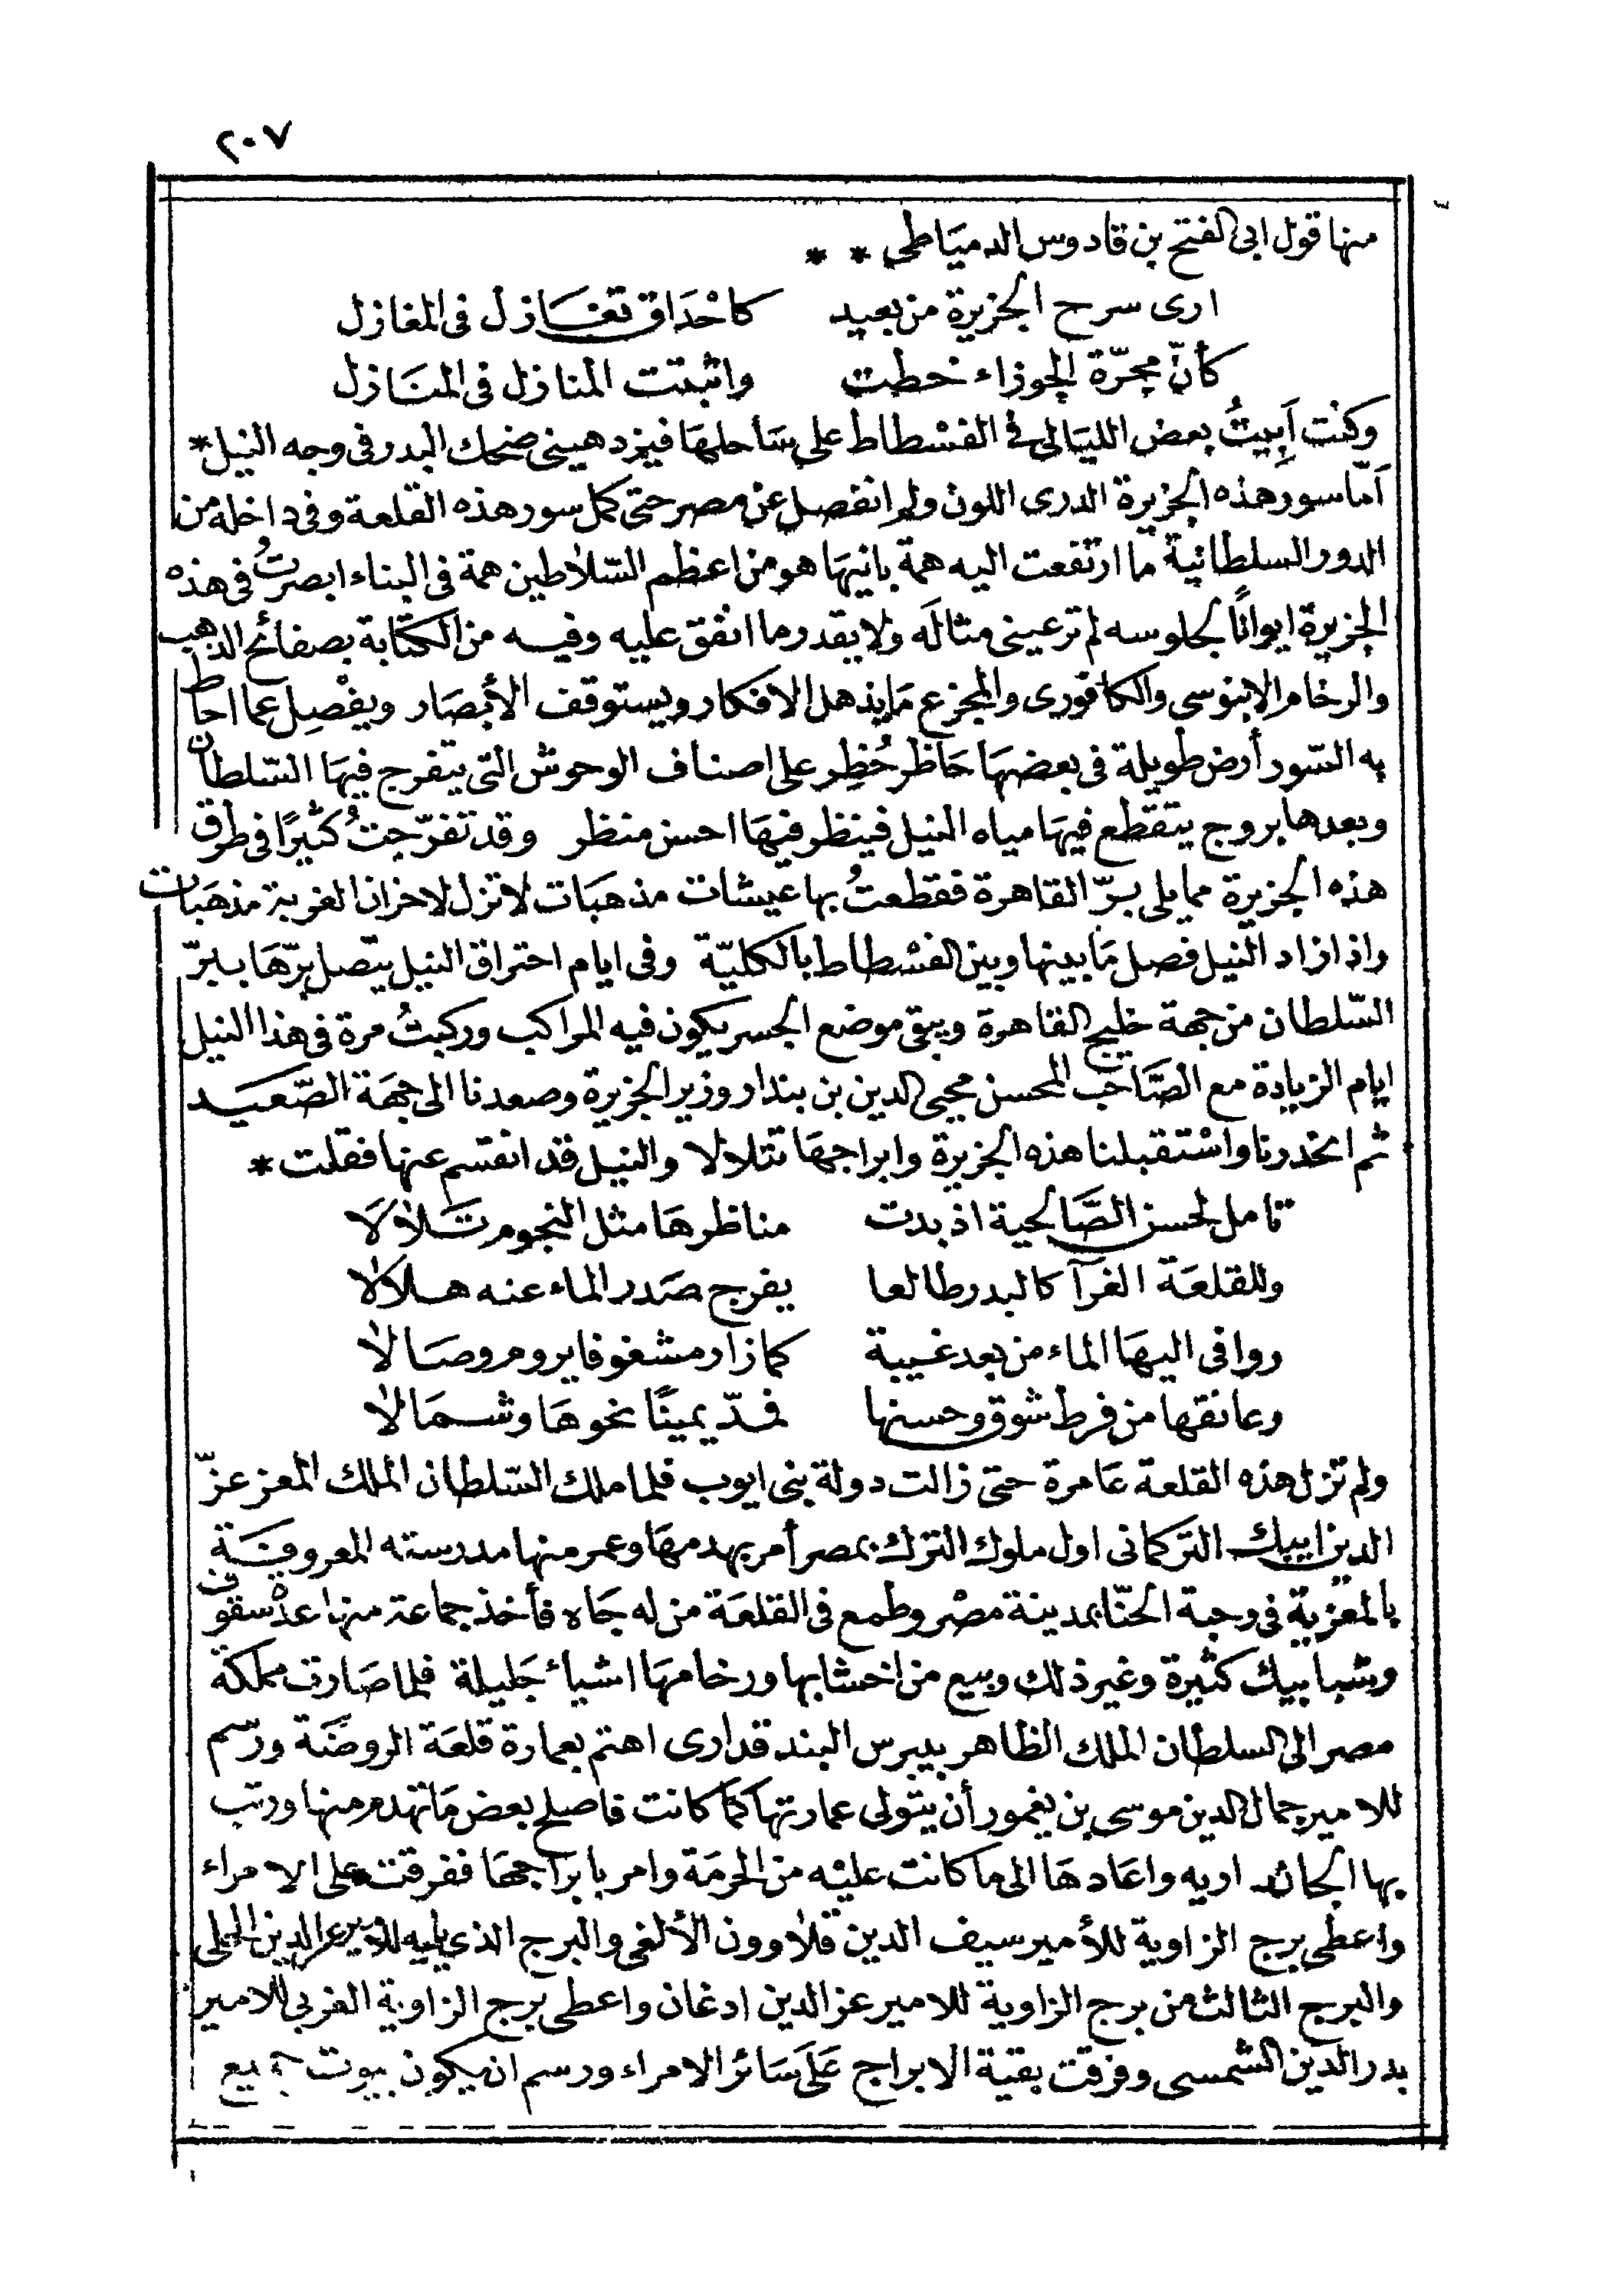 ٢٠٧
منها قول ابى الفتح بن قادوس الدمياطى * *
ارى سرح الجزيرة من بعيد كأحْدَاق تغَازل فى المغازل
كأنّ مجرّة الجوزاء خطت واثبتت المنازل فى المنَازل
وكنت أَبِيتُ بعض الليَالى فى الفسْطاط على سَاحلهَا فيزدهينى ضحك البدر فى وجه النيل *
أمّا سور هذه الجزيرة الدرى اللون ولم انفصل عن مصر حتى كمل سور هذه القلعة وفى داخله من
الدور السلطانية ما ارتفعت اليه همة بانيهَا هو من اعظم السّلاطين همة فى البناء ابصرتُ فى هذه
الجزيرة ايوانًا لجلوسه لم ترعينى مثالَه ولا يقدر ما انفق عليه وفيه من الكتابة بصفائح الذهب
والرخام الابنوسى والكافورى والمجزع مَا يذهل الافكار ويستوقف الأبصَار ويفْصِل عما احاط
به السّور أرض طويلة فى بعضهَا حَاظر حُظِر على اصناف الوحوش التى يتفرج فيهَا السّلطان
وبعدها بروج يتقطع فيهَا مياه النيل فينظر فيهَا احسن منظر وقد تفرّجتُ كثيرًا فى طرق
هذه الجزيرة مما يلى برّ القاهرة فقطعتُ بها عيشات مذهبَات لا تزل لاحزان الغربة مذهبَات
واذا زاد النيل فصل مَا بينها وبين الفسْطاط بالكليّة وفى ايام احتراق النيل يتّصل برّهَا ببرّ
السّلطان من جهة خليج القاهرة ويبقى موضع الجسر يكون فيه المراكب وركبتُ مرة فى هذا النيل
ايام الزيادة مع الصَّاحب المحسن محيى الدين بن بندار وزير الجزيرة وصعدنا الى جهَة الصّعَيد
ثم انحدرنا واسْتقبلنا هذه الجزيرة وابراجهَا تتلالا والنيل قد انقسم عنها فقلت *
تامل لحسن الصَّالحية اذ بدت مناظرهَا مثل النجوم تَلالاَ
وللقلعَة الغرآ كالبدر طالعا يفرج صَدر الماء عنه هلالا
ووافى اليهَا الماء من بعد غيبة كما زار مشغوفا يروم وصَالا
وعانقها من فرط شوق وحسنها فمدّ يمينًا نحوهَا وشمَالا
ولم تزل هذه القلعة عَامرة حتى زالت دولة بنى ايوب فلما ملك السّلطان الملك المعز عزّ
الدين ايبك التركمانى اول ملوك الترك بمصر أمر بهدمهَا وعمر منها مدرسته المعروفَة
بالمعزية فى رحبة الحنّا بمدينة مصْر وطمع فى القلعَة من له جَاه فأخذ جماعة منها عدْ سقوف
وشبابيك كثيرة وغير ذلك وبيع من اخشابها ورخامهَا اشياء جَليلة فلما صَارت مملكة
مصر الى السلطان الملك الظاهر بيبرس البندقدارى اهتم بعمارة قلعَة الروضَة ورسم
للامير جمال الدين موسى بن يغمور أن يتولى عمارتها كمَا كانت فاصلح بعض مَا تهدم منها ورتب
بها الجاندارية واعَادهَا الى ما كانت عليْه من الحرمَة وامر بابرَاجهَا ففرقت على الامراء
واعطى برج الزاوية للأمير سيف الدين قلاوون الألفى والبرج الذى يليه للأمير عز الدين الحلى
والبرج الثالث من برج الزاوية للامير عز الدين ادغان واعطى برج الزاوية الغربى للامير
بدر الدين الشمسى وفرقت بقية الابراج عَلى سَائر الامراء ورسم ان يكون بيوت جميع